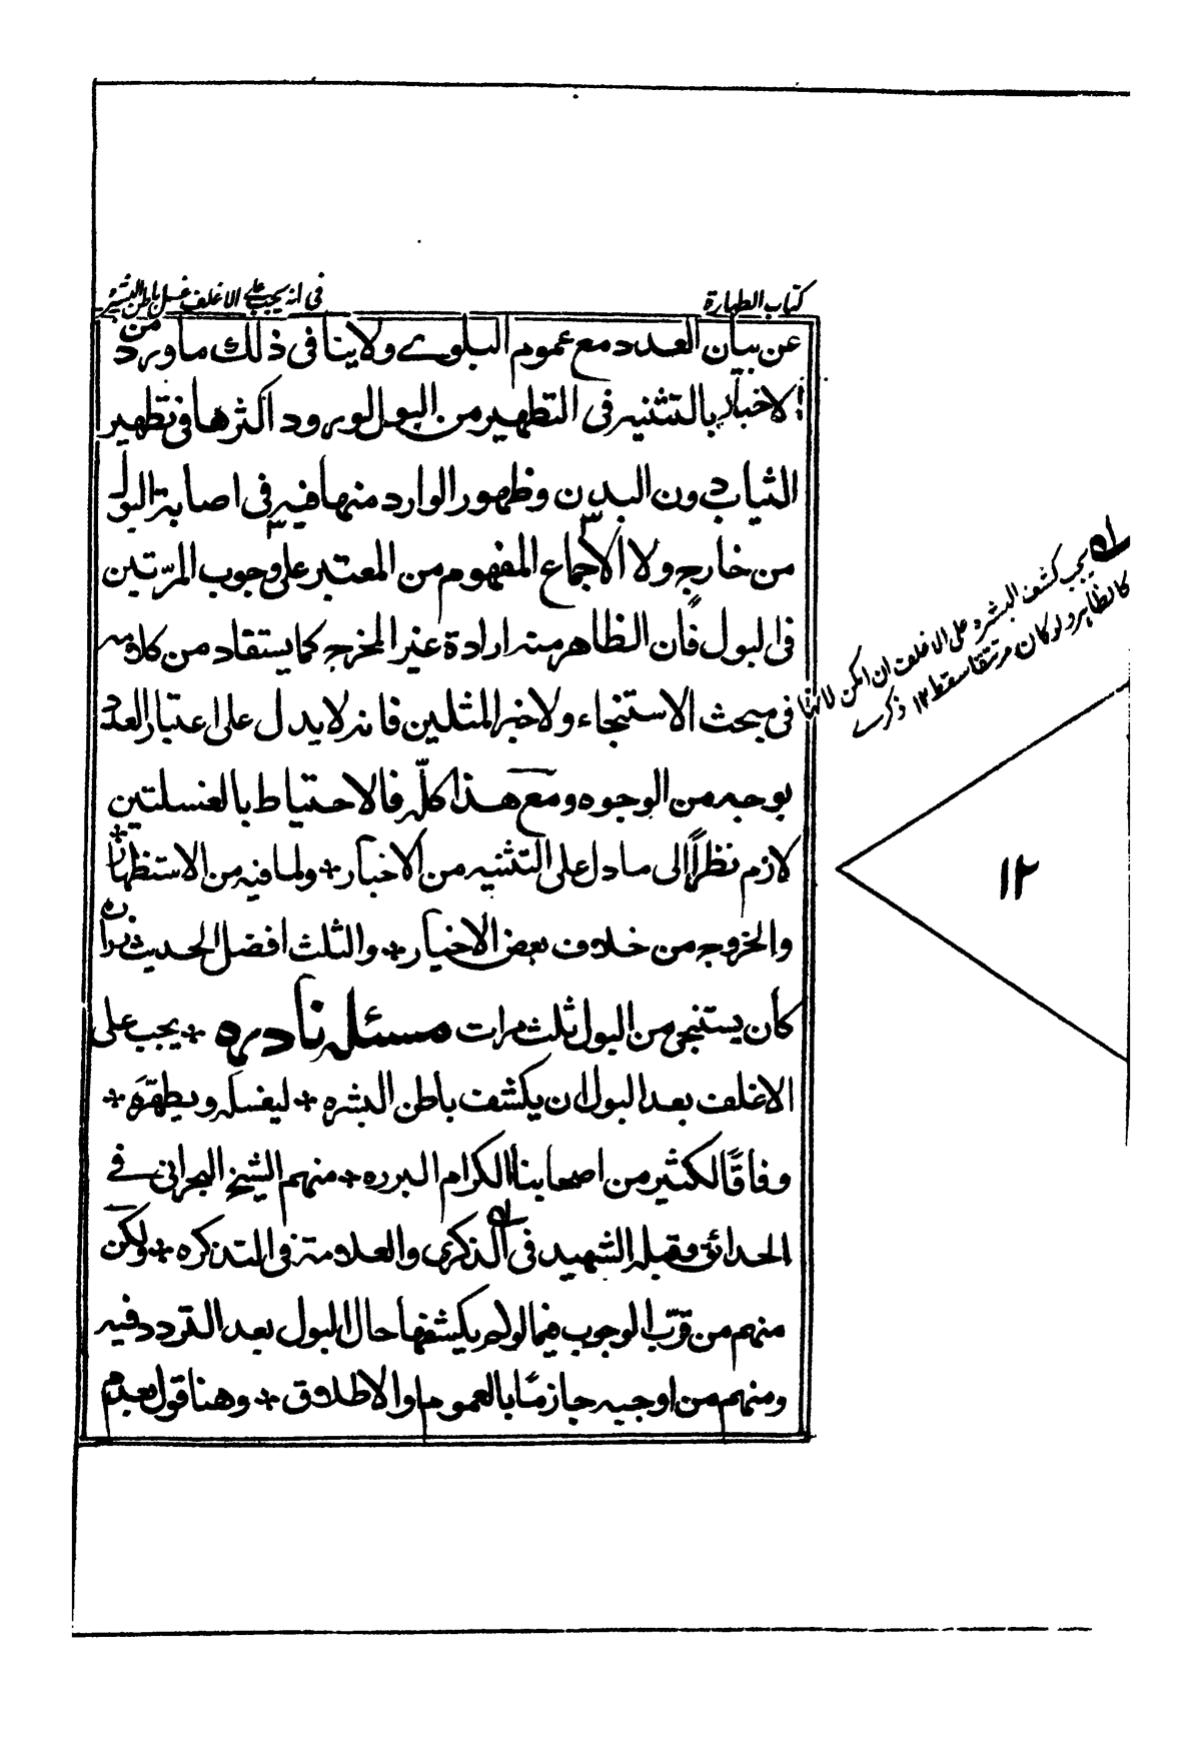 كتاب الطهارة
فى انه يجب على الاغلف غسل باطن البشرة
عن بيان العدد مع عموم البلوے ولا ينافى ذلك ما ورد من
الاخبار بالتثنيه فى التطهير من البول لورود اكثرها فى تطهير
الثياب دون البدن وظهور الوارد منها فيه فى اصابة البول
من خارج ولا الاجماع المفهوم من المعتبر على وجوب المرّتين
فى البول فان الظاهر منه ارادة غير المخرج كما يستفاد من كلامه
فى مبحث الاستنجاء ولا خبر المثلين فانه لا يدل على اعتبار العدد
بوجه من الوجوه ومع هذا كلّه فالاحتياط بالغسلتين
لازم نظرًا الى ما دل على التثنيه من الاخبار + ولما فيه من الاستظهار +
والخروج من خلاف بعض الاخيار + والثلث افضل لحديث زرارة
كان يستنجى من البول ثلث مرات مسئله نادره + يجب على
الاغلف بعد البول ان يكشف باطن البشره + ليغسله ويطهّره +
وفاقًا لكثير من اصحابنا الكرام البرره + منهم الشيخ البحرانى فے
الحدائق وقبله الشهيد فى الذكرى والعلامة فى التذكره + ولكن
منهم من قرّب الوجوب فيما لو لم يكشفها حال البول بعد التردد فيه
ومنهم من اوجبه جازمًا بالعموم والاطلاق + وهنا قول بعدم
له يجب كشف البشره على الاغلف ان امكن لانها
كالظاهر ولو كان مرتتقا سقط ١٢ ذكرے
١٢